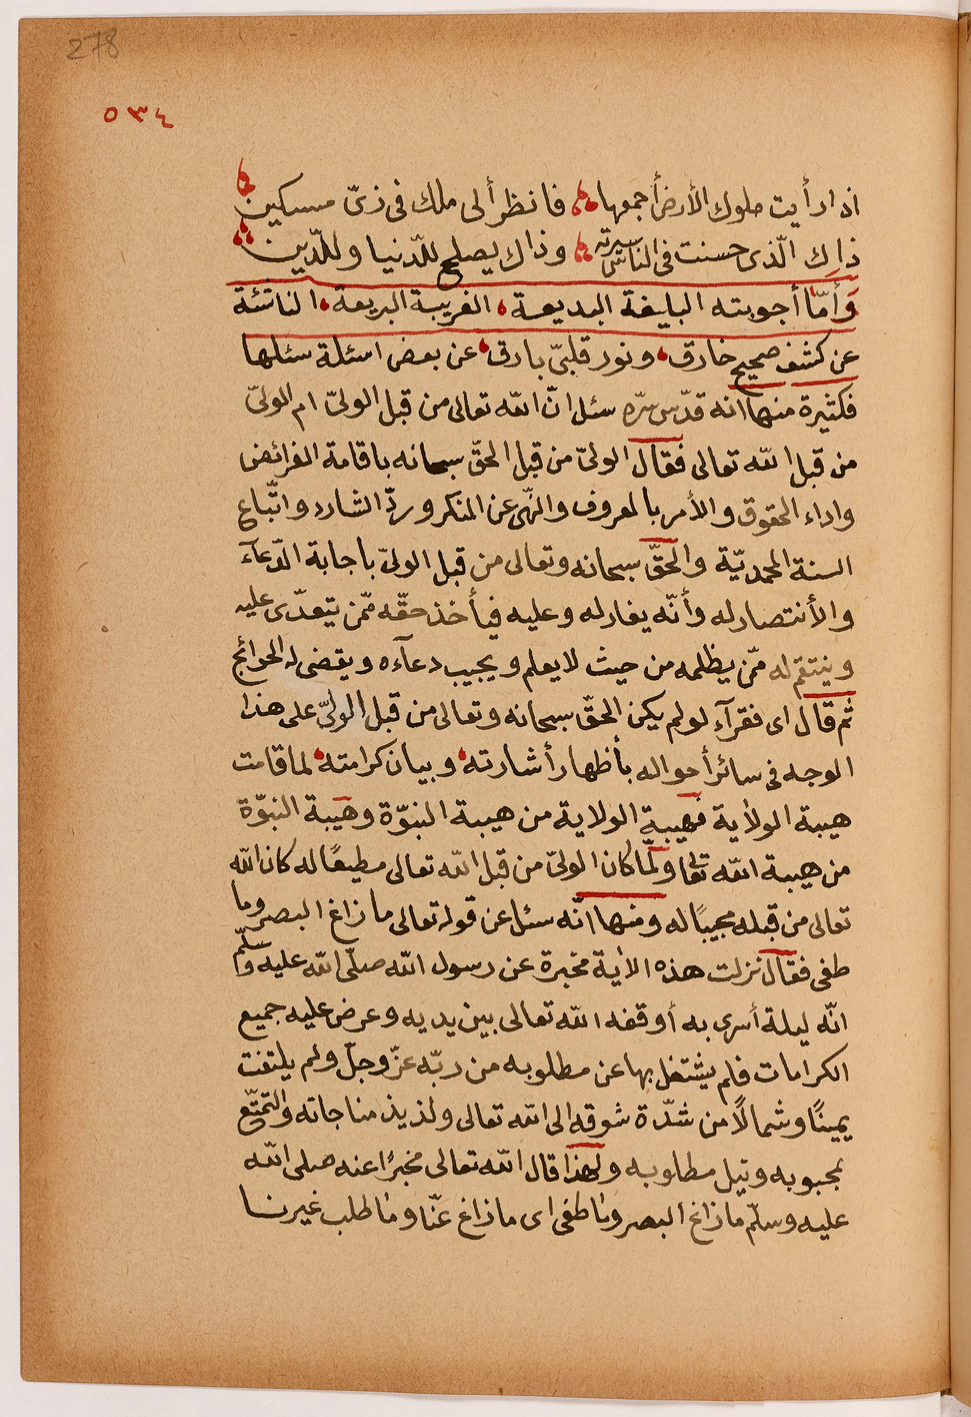 278
٥٣٤
اذا رأيت ملوك الأرض أجمعها فانظر ألى ملك فى زىّ مسكين
ذاك الّذى حسنت فى الناس سيرته وذاك يصلح للدّنيا وللدّين
وأمّا أجوبته البليغة البديعة الغريبة البريعة الناشئة
عن كشف صحيح خارق ونور قلبىّ بارق عن بعض اسئلة سئلها
فكثيرة منها انه قدّس سرّه سئل انّ الله تعالى من قبل الولىّ ام الولىّ
من قبل الله تعالى فقال الولىّ من قبل الحقّ سبحانه باقامة الفرائض
واداء الحقوق والأمر بالمعروف والنّهى عن المنكر وردّ الشارد واتّباع
السنة المحمديّة والحقّ سبحانه وتعالى من قبل الولىّ باجابة الدّعآء
والأنتصار له وأنّه يغار له وعليه فيأخذ حقّه ممّن يتعدّى عليه
وينتقم له ممّن يظلمه من حيث لا يعلم ويجيب دعآءه ويقضى له الحوائج
ثم قال اى فقرآء لو لم يكن الحقّ سبحانه وتعالى من قبل الولىّ على هذا
الوجه فى سائر أحواله بأظهار أشارته وبيان كرامته لما قامت
هيبة الولاية فهيبة الولاية من هيبة النبوّة وهيبة النبوّة
من هيبة الله تعالى ولمّا كان الولىّ من قبل الله تعالى مطيعًا له كان الله
تعالى من قبله مجيبًا له ومنها انّه سئل عن قوله تعالى ما زاغ البصر وما
طغى فقال نزلت هذه الاية مخبرة عن رسول الله صلّى الله عليه وسلّم
انّه ليلة أسرى به أوقفه الله تعالى بين يديه وعرض عليه جميع
الكرامات فلم يشتغل بها عن مطلوبه من ربّه عزّ وجلّ ولم يلتفت
يمينًا وشمالًا من شدّة شوقه الى الله تعالى ولذيذ مناجاته والتمتّع
بمحبوبه ونيل مطلوبه ولهذا قال الله تعالى مخبرًا عنه صلى الله
عليه وسلّم ما زاغ البصر وما طغى اى ما زاغ عنّا وما طلب غيرنا